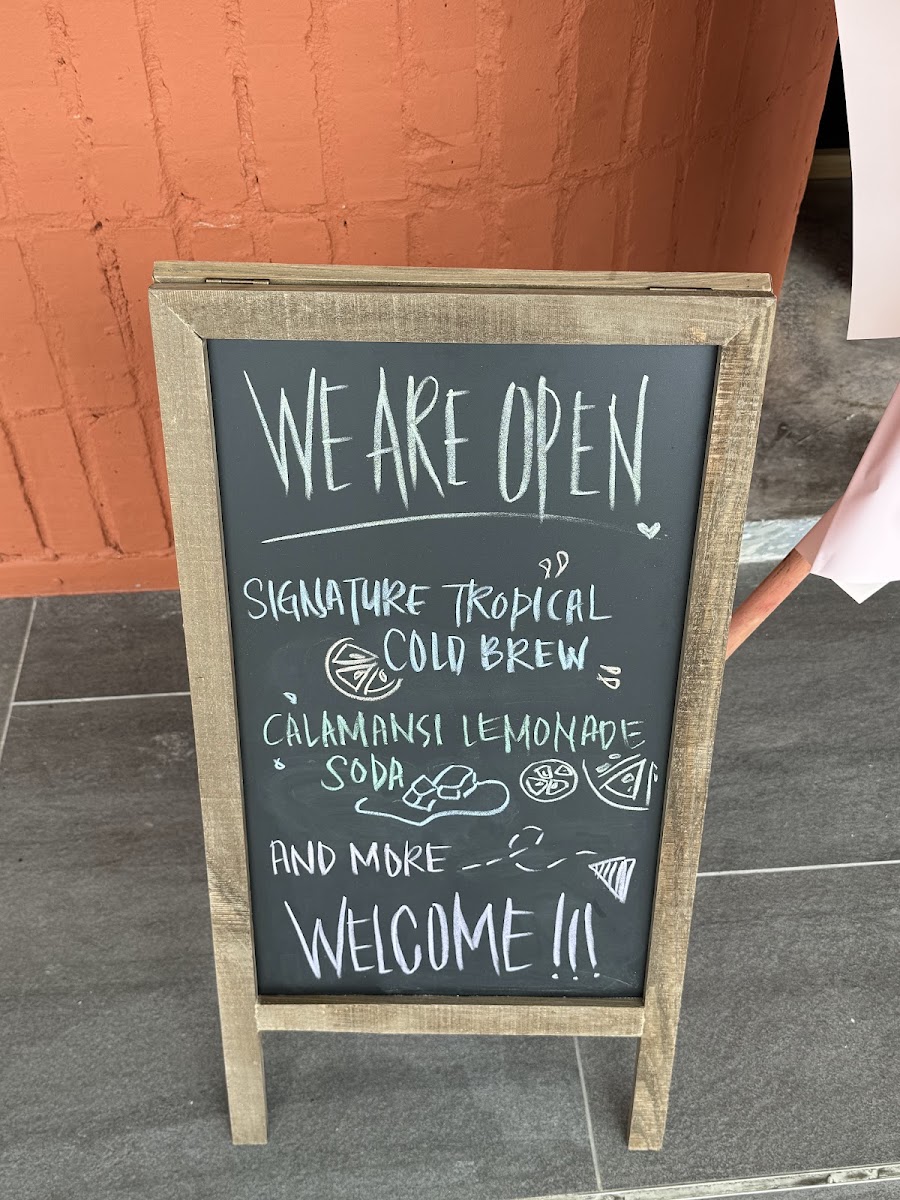 WE ARE OPEN
SIGNATURE TROPICAL
COLD BREW
CALAMANSI LEMONADE
SODA
AND MORE
WELCOME !!!